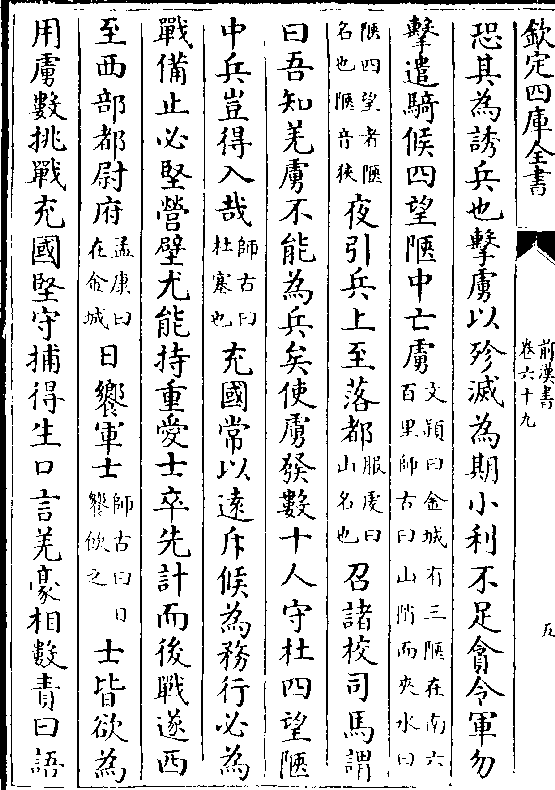 欽定四庫全書
前漢書
卷六十九
五
恐其為誘兵也擊虜以殄滅為期小利不足貪令軍勿
擊遣騎候四望陿中亡虜文穎曰金城有三陿在南六百里師古曰山陗而夾水曰
陿四望者陿名也陿音狹夜引兵上至落都服虔曰山名也召諸校司馬謂
曰吾知羌虜不能為兵矣使虜發數十人守杜四望陿
中兵豈得入哉師古曰杜塞也充國常以遠斥候為務行必為
戰備止必堅營壁尤能持重愛士卒先計而後戰遂西
至西部都尉府孟康曰在金城日饗軍士師古曰日饗飲之士皆欲為
用虜數挑戰充國堅守捕得生口言羌豪相數責曰語